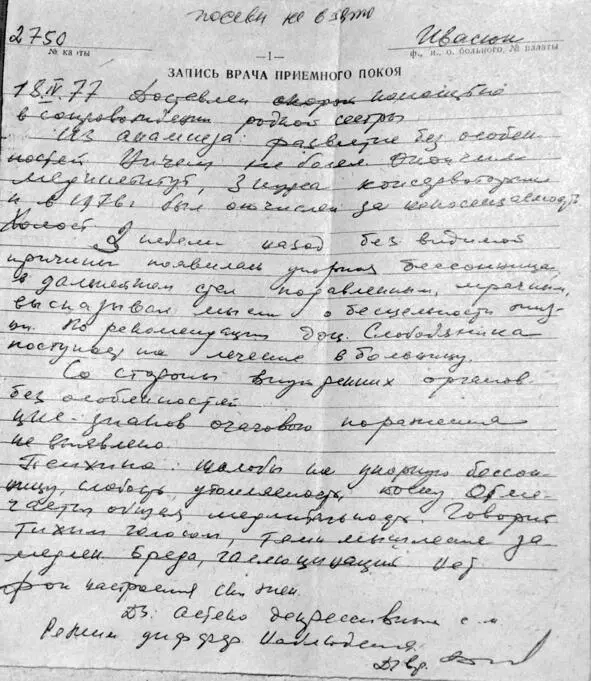 посевы не взято
2750 Ивасюк
№ карты —1— ф., и., о. больного, № палаты
ЗАПИСЬ ВРАЧА ПРИЕМНОГО ПОКОЯ
18 IV. 77 Доставлен скорой помощью
в сопровождении родной сестры
Из анамнеза: развитие без особен
ностей. Ничем не болел. Окончил
мединститут, 3 курса консерватории
и в 1976 г был отчислен за непосещаемость
Холост
2 недели назад без видимой
причины появилась упорная бессонница,
в дальнейшем стал подавленным, мрачным,
высказывал мысли о бесцельности жиз-
ни. По рекомендации доц. Слободяника
поступает на лечение в больницу.
Со стороны внутренних органов
без особенностей
ЦНС- знаков очагового поражения
не выявлено
Психика: жалобы на упорную бессон
ницу, слабость, утомляемость, Отме-
чается общая медлительность. Говорит
тихим голосом, темп мышления за
медлен. Бреда, галлюцинаций нет
фон настроения снижен.
DS: астено депрессивный с-м
Режим наблюдения.
Д. вр.